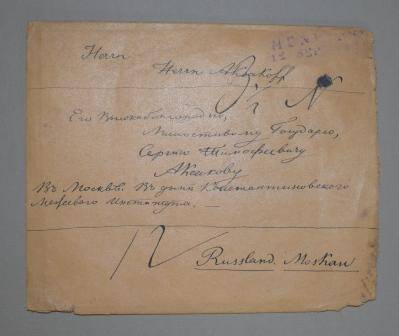 Herrn
Herrn Aksakoff
Его Высокоблагородію,
Милостивому Государю,
Сергею Тимофеевичу
Аксакову
Въ Москвѣ. Въ домѣ Константиновскаго
Межеваго Института.
Russland. Moskau